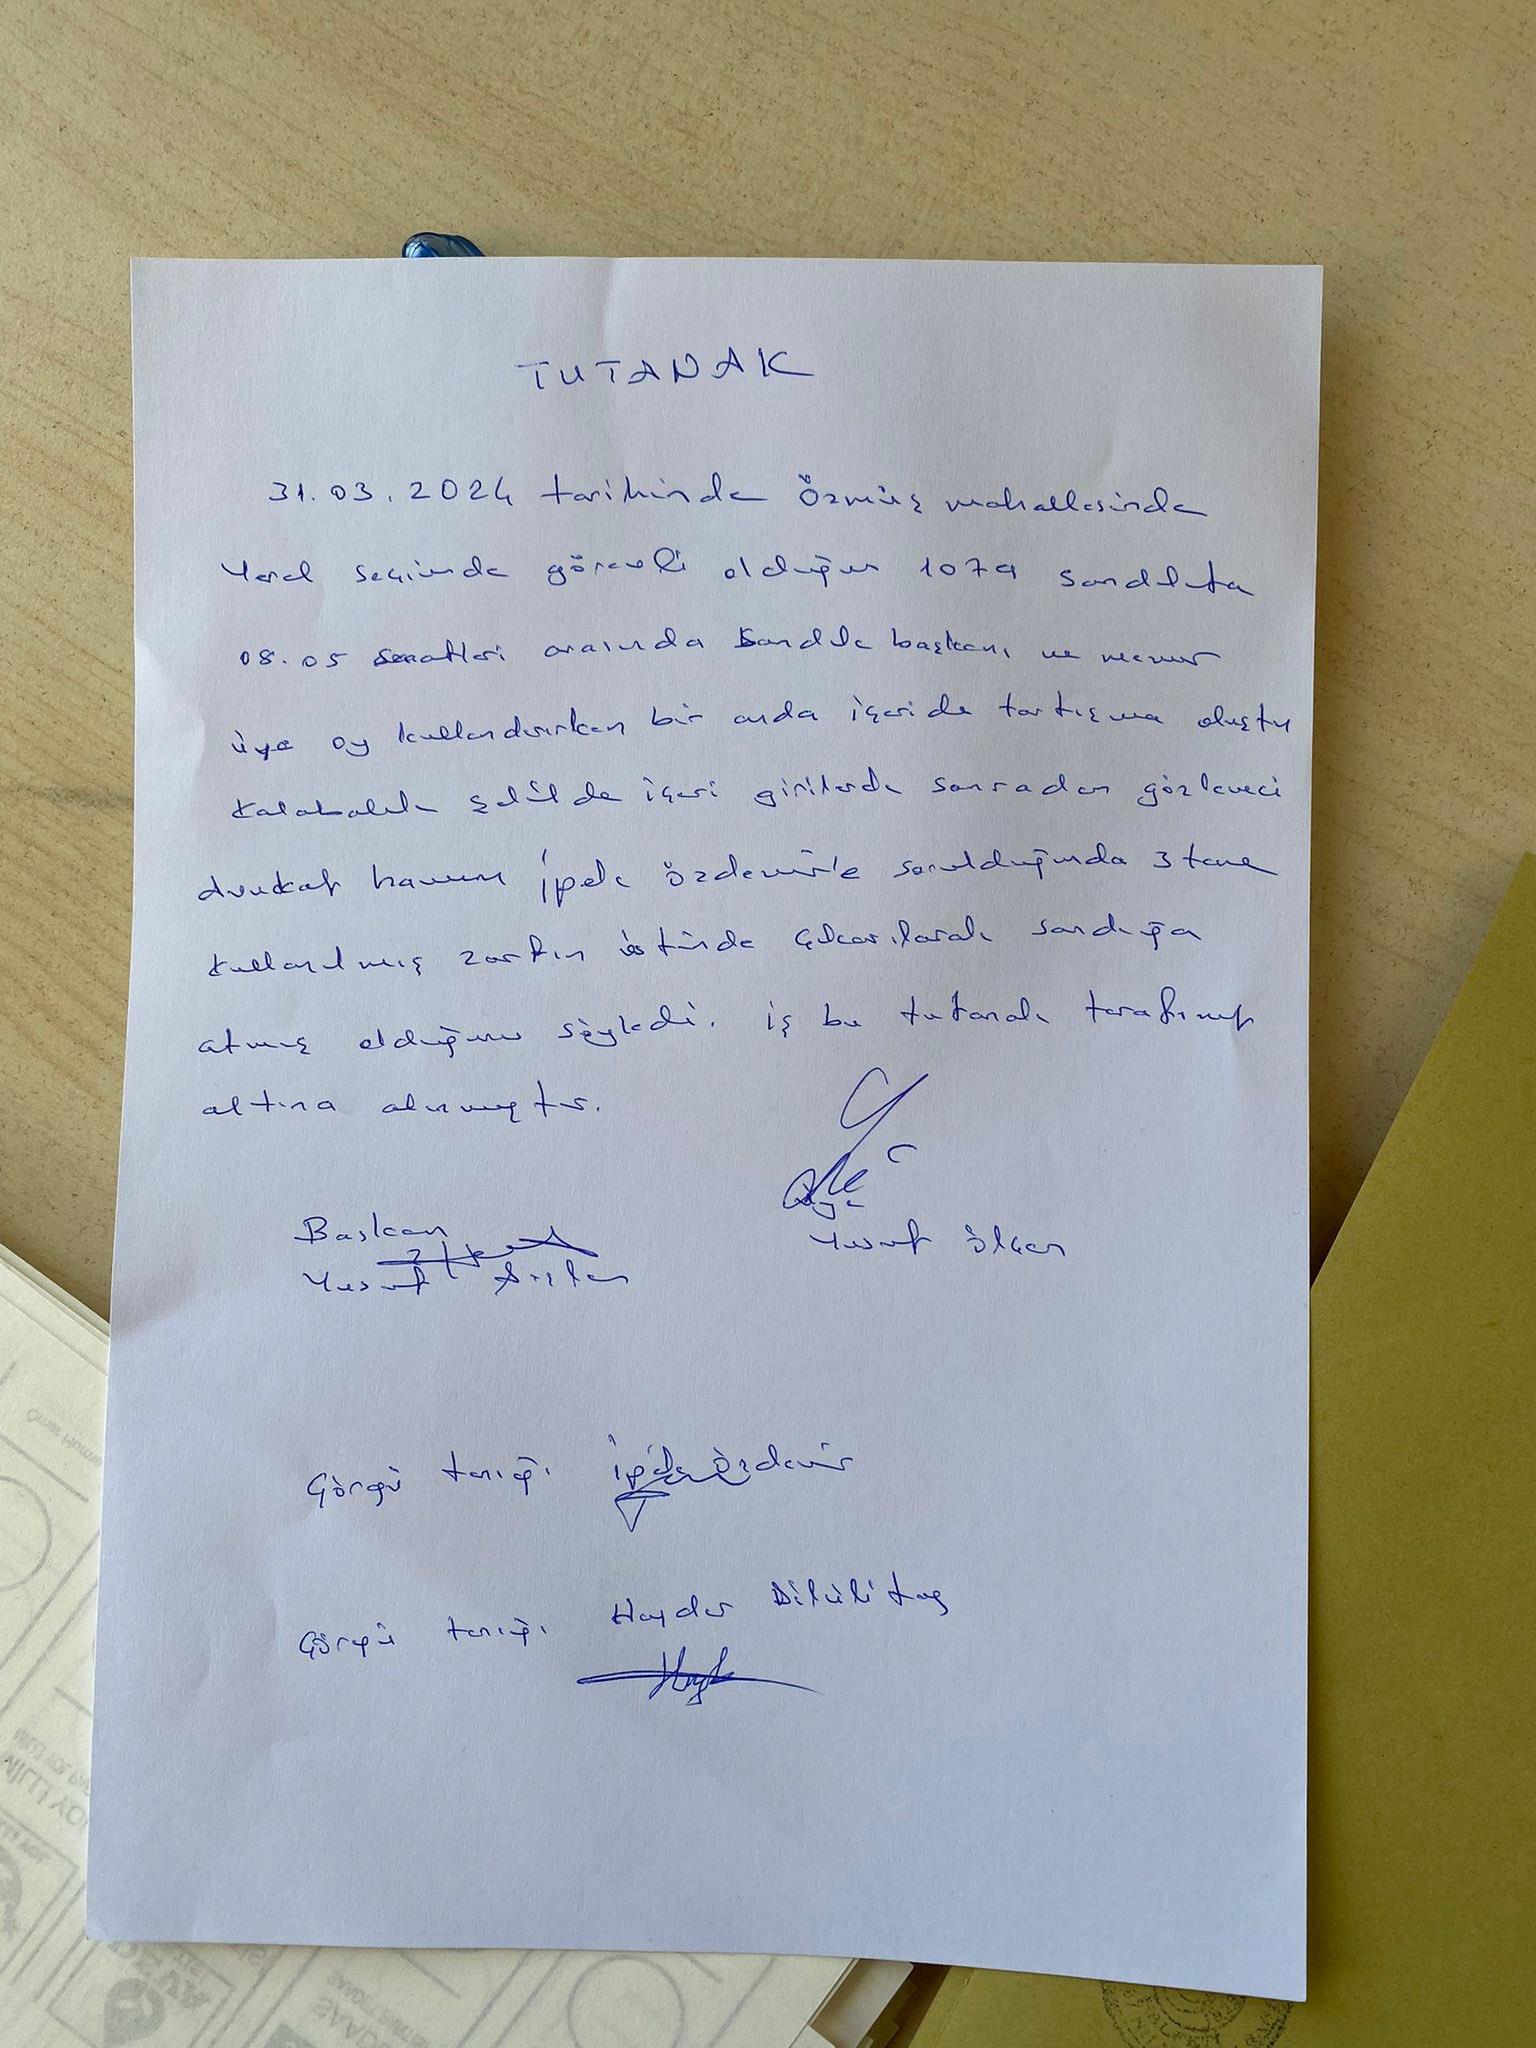 TUTANAK
31.03.2024 tarihinde Özmüş mahallesinde
Yerel seçimde görevli olduğum 1079 sandıkta
08.05 saatleri arasında sandık başkanı ve memur
üye oy kullandırırken bir anda içeride tartışma oluştu
kalabalık şekilde içeri girilerek sonradan gözlemci
avukat hanım İpek Özdemir'e sorulduğunda 3 tane
kullanılmış zarfın üstünde çıkarılarak sandığa
atmış olduğunu söyledi. iş bu tutanak tarafımız
altına alınmıştır.
Başkan
Üye
Yusuf Arslan
Yusuf Ölçen
Görgü tanığı İpek Özdemir
Görgü tanığı Haydar
SAADET PARTİSİ
DEVA
MİLLİ YOL